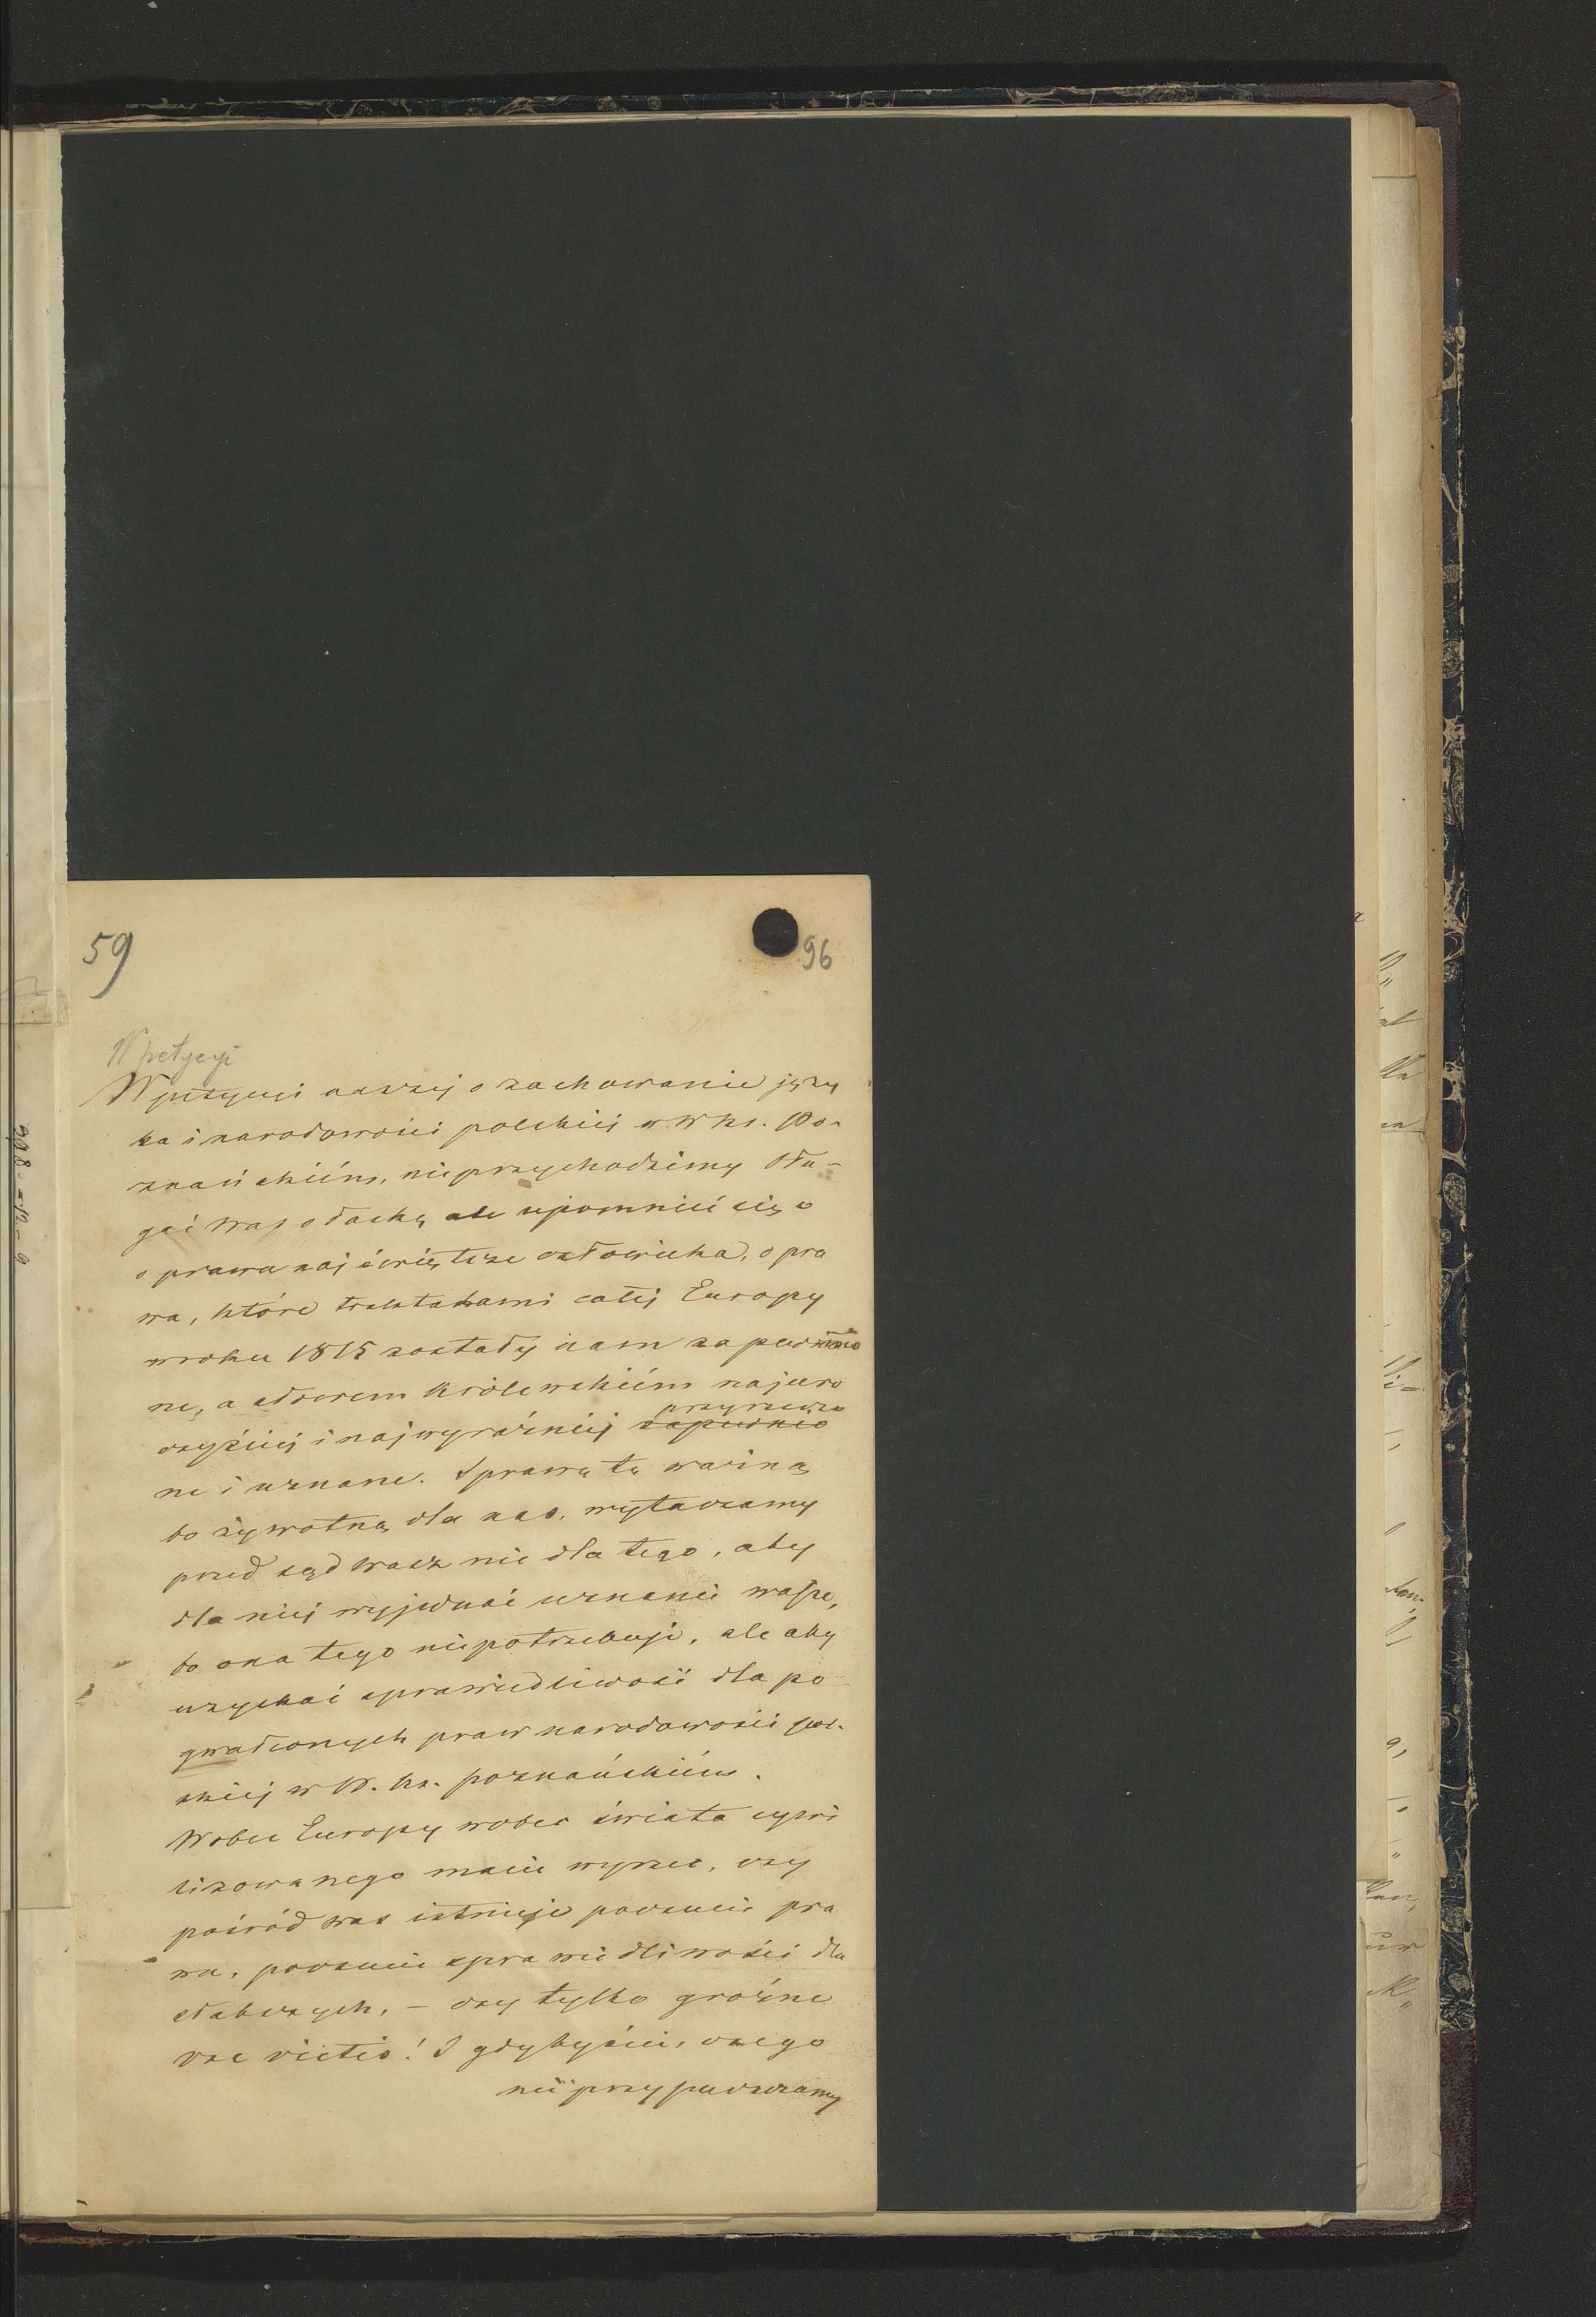 59
96
W petycyi
W petycyi naszej o zachowanie języ
ka i narodowości polskiéj w W ks. Po-
znańskiém, nieprzychodzimy bła-
gać Was o łaskę ale upomnieć się o
o prawa najświętsze człowieka, o pra
wa, które traktatami całéj Europy
w roku 1815 zostały nam zapewnio
ne, a słowem Królewskiém najuro
czyściéj i najwyraźniéj zapewnio przyrzeczo
ne i uznane. Sprawę tę ważną
bo żywotną dla nas, wytaczamy
przed sąd Wasz nie dla tego, aby
dla niéj wyjednać uznanie wasze,
bo ona tego niepotrzebuje, ale aby
uzyskać sprawiedliwość dla po
gwałconych praw narodowości pol-
skiéj w W. ks. poznańskiém.
Wobec Europy wobec świata cywi
lizowanego macie wyrzec, czy
pośród was istnieje poczucie pra
wa, poczucie sprawiedliwości dla
słabszych, – czy tylko groźne
vae victis! I gdybyście, czego
nie przypuszczamy
998.-N-6